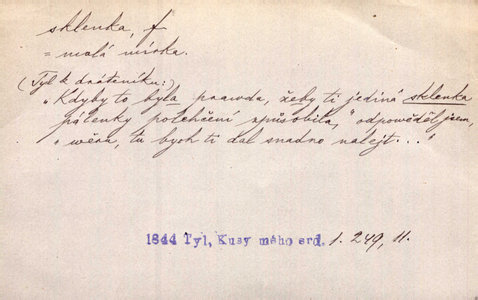 sklenka, f
= malá mírka.
(Tyl k dráteníku:)
"Kdyby to byla prawda, žeby ti jediná sklenka
pálenky polehčení způsobila," odpověděl jsem,
"wěru, tu bych ti dal snadno nalejt..."
1844 Tyl, Kusy mého srd. 1. 249, 11.